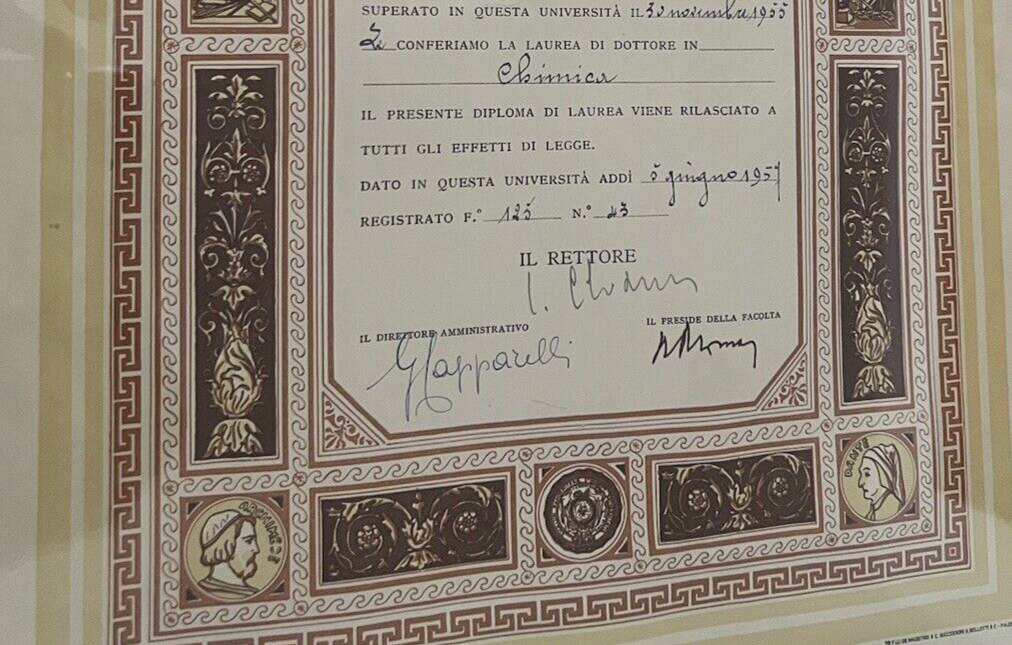 SUPERATO IN QUESTA UNIVERSITÀ IL 30 novembre 1955
Le CONFERIAMO LA LAUREA DI DOTTORE IN
Chimica
IL PRESENTE DIPLOMA DI LAUREA VIENE RILASCIATO A
TUTTI GLI EFFETTI DI LEGGE.
DATO IN QUESTA UNIVERSITÀ ADDÌ 5 giugno 1957
REGISTRATO F.° 125 N.° 43
IL RETTORE
IL DIRETTORE AMMINISTRATIVO
IL PRESIDE DELLA FACOLTA
DANTE
ARCHIMEDE